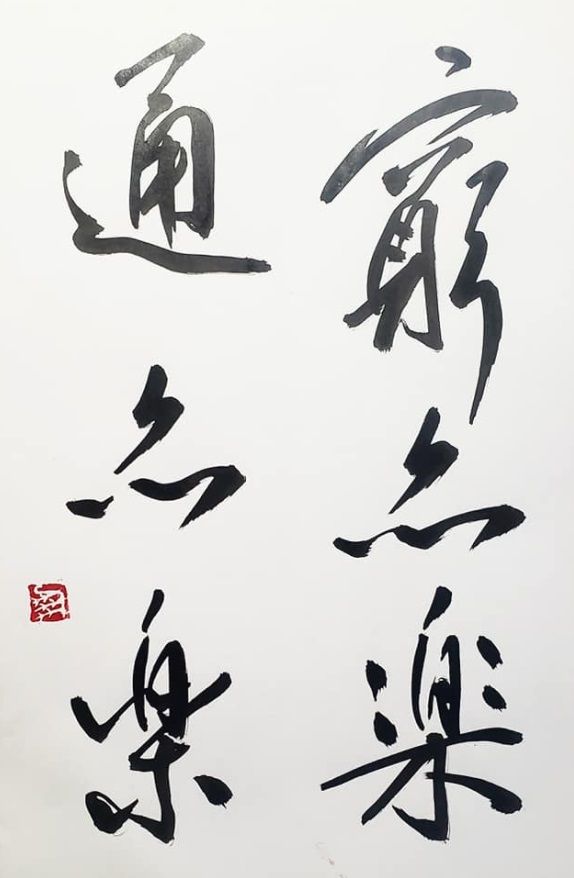 窮亦樂
通亦樂